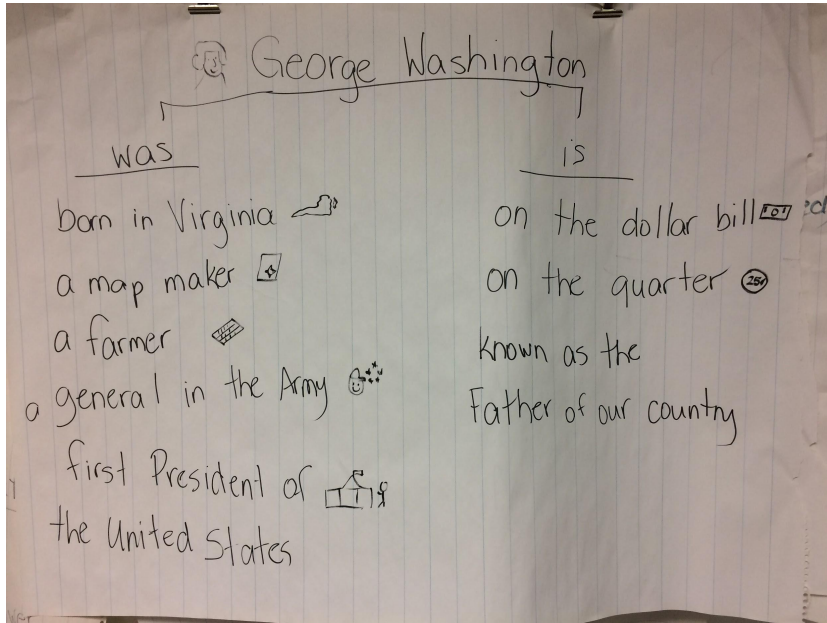 George Washington
was
born in Virginia
a map maker
a farmer
a general in the Army
first President of
the United States
is
on the dollar bill
on the quarter
25¢
known as the
Father of our country